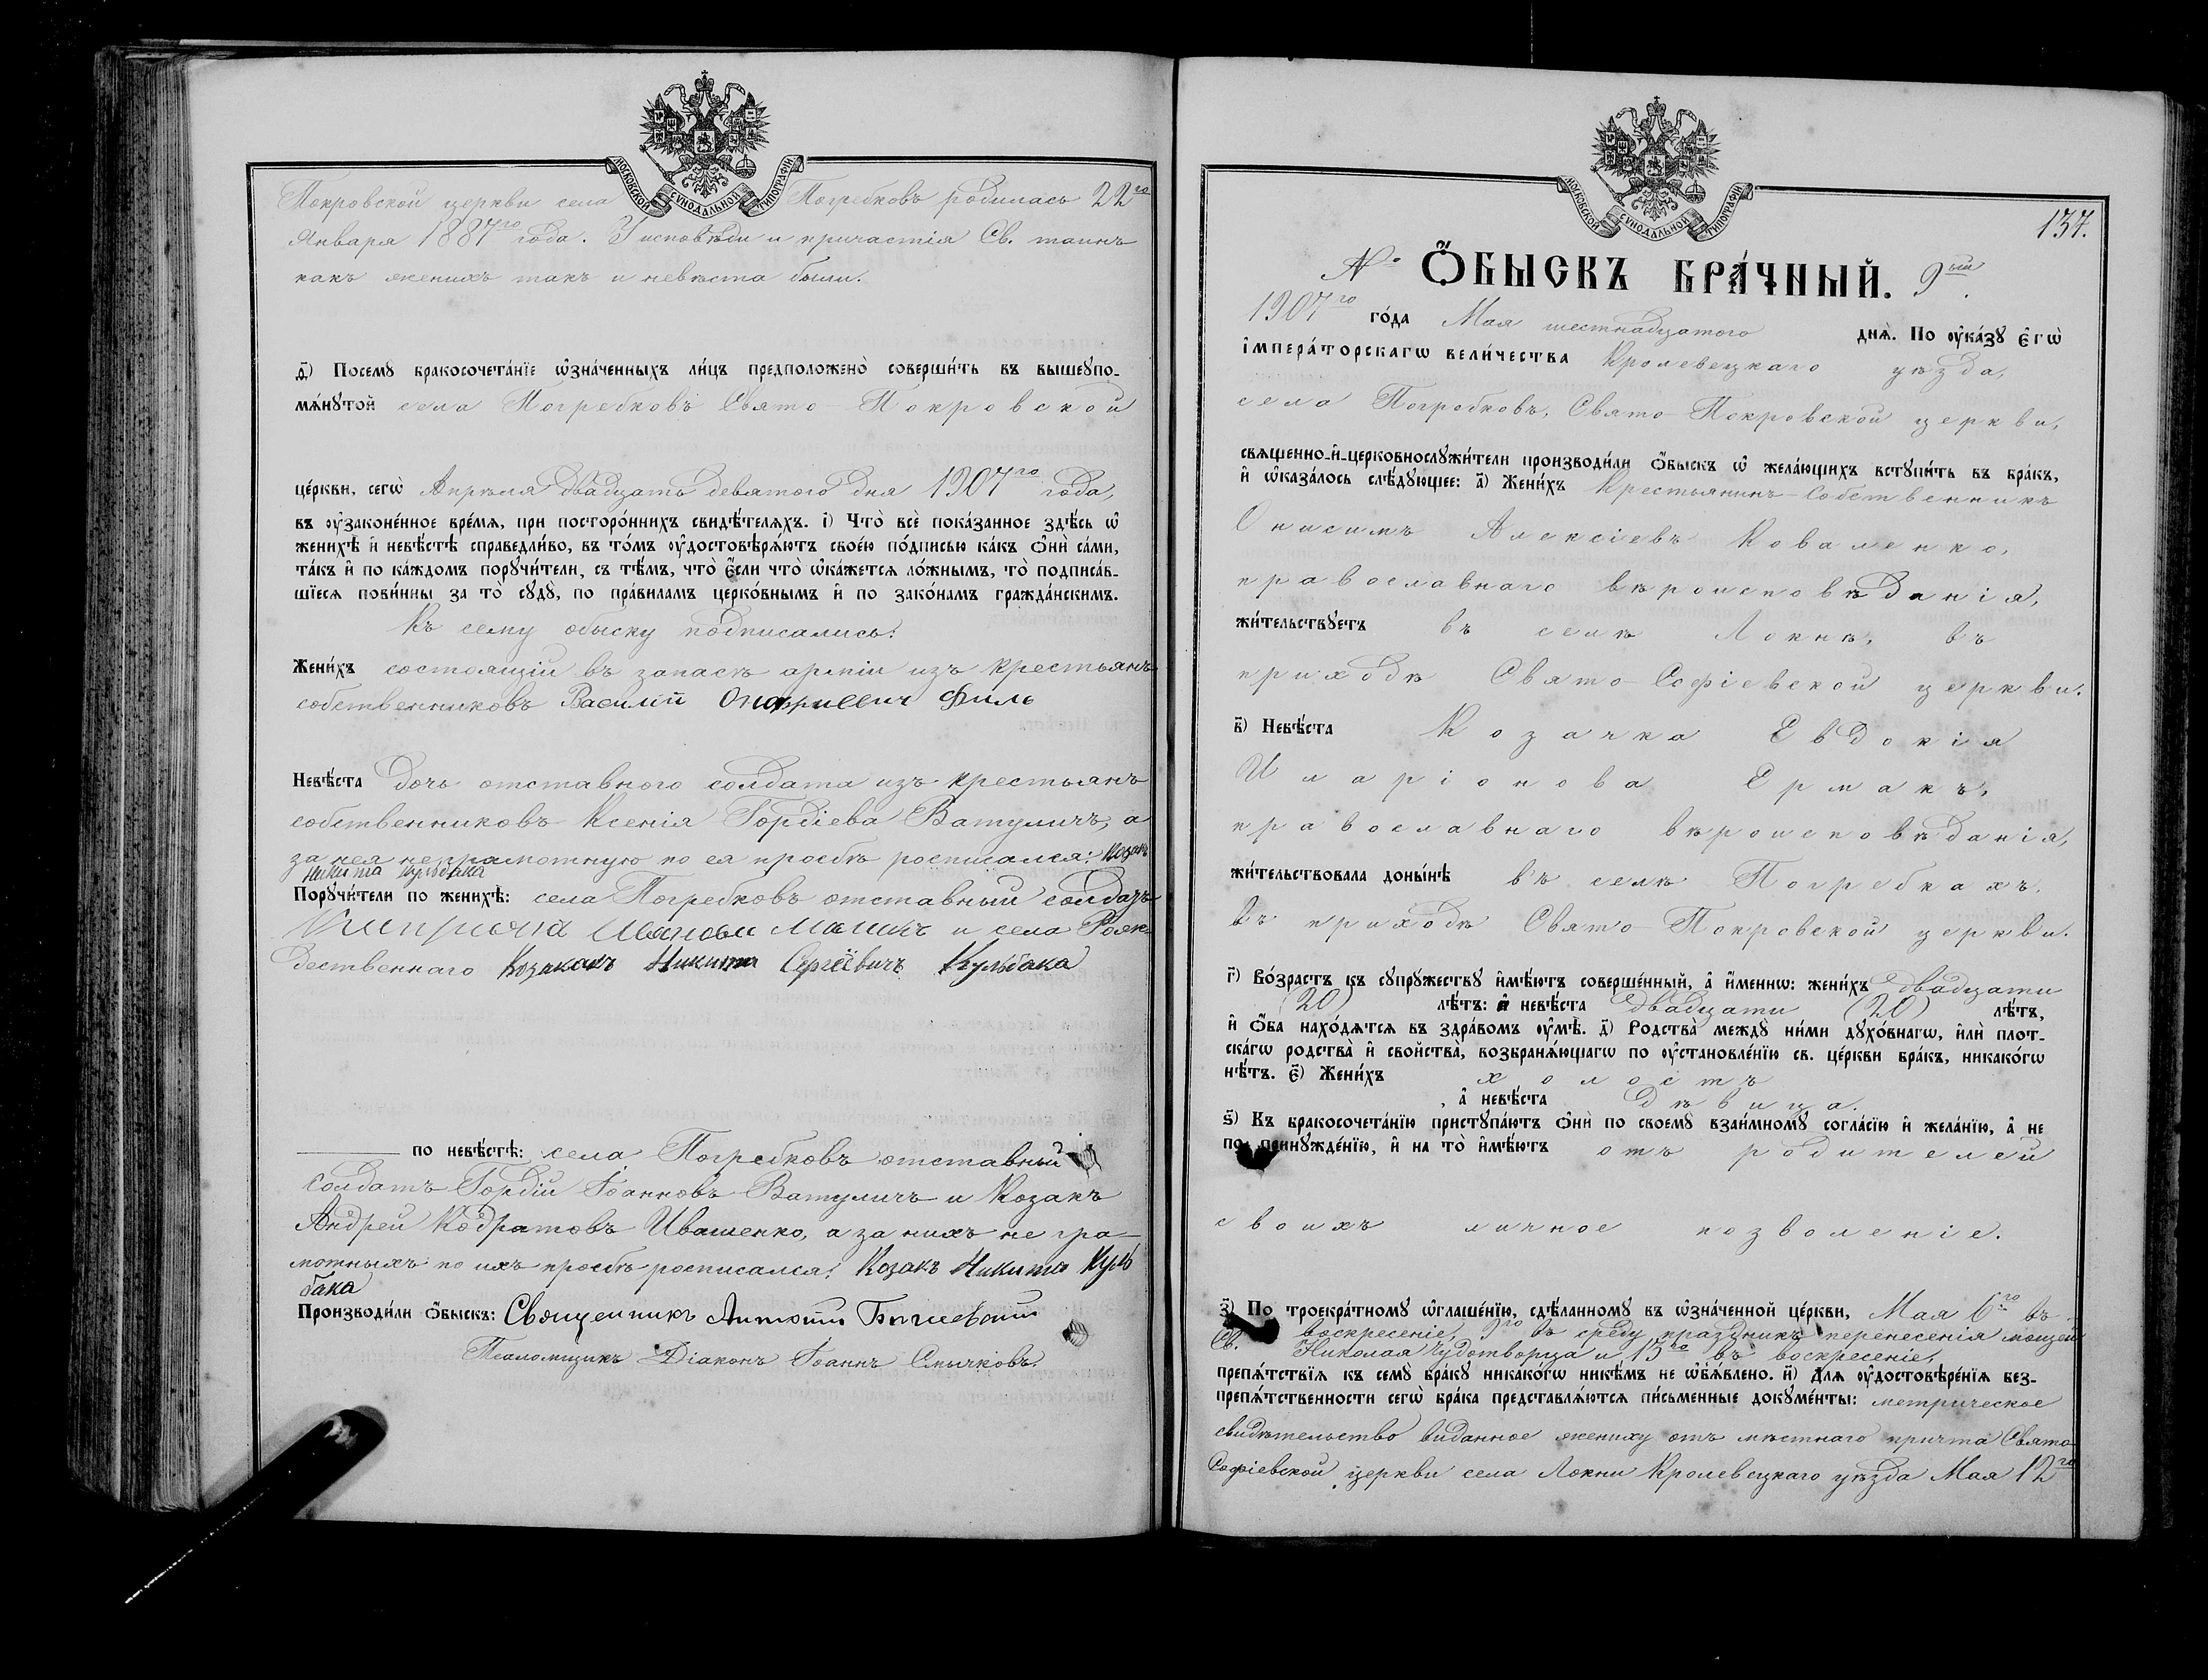 МОСКОВСКОЙ СѴНОДАЛЬНОЙ ТИПОГРАФІИ
Покровской церкви села Погребковъ родилась 22го
Января 1887го года. У исповѣди и причастія Св. таинъ
какъ женихъ такъ и невѣста были.
д҃) Посемꙋ бракосочета́нїе ѡ҆зна́ченныхъ ли́цъ предположено̀ соверши́ть въ вышеꙋпо-
мѧ́нꙋтой села Погребковъ Свято-Покровской
це́ркви, сегѡ̀ Апрѣля двадцать девятого дня 1907го года,
въ ᲂу҆законе́нное вре́мѧ, при посторо́ннихъ свидѣ́телѧхъ. і҃) Что̀ всѐ пока́занное здѣ́сь ѡ҆
женихѣ̀ и҆ невѣ́стѣ справедли́во, въ то́мъ ᲂу҆достовѣрѧ́ютъ свое́ю по́дписью ка́къ ѻ҆нѝ са́ми,
та́къ и҆ по ка́ждомъ порꙋчи́тели, съ тѣ́мъ, что̀ є҆́сли что̀ ѡ҆ка́жетсѧ ло́жнымъ, то̀ подписа́в-
шїесѧ пови́нны за то̀ сꙋдꙋ̀, по пра́виламъ церко́внымъ и҆ по зако́намъ гражда́нскимъ.
Къ сему обыску подписались:
Жени́хъ состоящій въ запасѣ арміи изъ крестьянъ
собственниковъ Василій Онофриевич Филь
Невѣ́ста дочь отставного солдата изъ крестьянъ
собственниковъ Ксенія Гордіева Ватуличъ, а
за нея неграмотную по ея просьбѣ росписался: Козакъ
Никита Кульбака
Порꙋчи́тели по женихѣ̀: села Погребковъ отставный солдатъ
Иванов и села Рож-
дественнаго Козакъ Никита Сергѣевичъ Кульбака
по невѣ́стѣ: села Погребковъ отставный
солдатъ Гордій Іоанновъ Ватуличъ и Козакъ
Андрей Кодратовъ Ивашенко, а за нихъ не гра-
мотныхъ по ихъ просьбѣ росписался: Козакъ Никита Куль
бака
Производи́ли ѻ҆́быскъ: Священникъ Антоній
Псаломщикъ Діаконъ Іоаннъ Смычковъ.
МОСКОВСКОЙ СѴНОДАЛЬНОЙ ТИПОГРАФІИ
137.
№ Ѻ҆́БЫСКЪ БРА́ЧНЫЙ. 9ый
1907го го́да Мая шестнадцатого днѧ̀. По ᲂу҆ка́зꙋ є҆гѡ̀
і҆мпера́торскагѡ вели́чества Кролевецкаго уѣзда,
села Погребковъ, Свято-Покровской церкви,
свѧщенно-и҆-церковнослꙋжи́тели производи́ли ѻ҆́быскъ ѡ҆ жела́ющихъ вступи́ть въ бра́къ,
и҆ ѡ҆каза́лось слѣ́дꙋющее: а҃) Жени́хъ Крестьянинъ-собственникъ
Онисимъ Алексіевъ Коваленко,
православнаго вѣроисповѣданія,
жи́тельствꙋетъ въ селѣ Локнѣ, въ
приходѣ Свято-Софіевской церкви.
в҃) Невѣ́ста Козачка Евдокія
Иларіонова Ермакъ,
православнаго вѣроисповѣданія,
жи́тельствовала доны́нѣ въ селѣ Погребкахъ,
въ приходѣ Свято-Покровской церкви.
г҃) Во́зрастъ къ сꙋпрꙋжествꙋ и҆мѣ́ютъ соверше́нный, а҆ и҆́меннѡ: жени́хъ двадцати
(20) лѣ́тъ: а҆ невѣ́ста двадцати (20) лѣ́тъ,
и҆ ѻ҆́ба нахо́дѧтсѧ въ здра́вомъ ᲂу҆мѣ̀. д҃) Родства̀ междꙋ̀ ни́ми дꙋхо́внагѡ, и҆лѝ плот-
ска́гѡ родства̀ и҆ свойства̀, возбранѧ́ющагѡ по ᲂу҆становле́нїю св. це́ркви бра́къ, никако́гѡ
нѣ́тъ. є҃) Жени́хъ холостъ
, а҆ невѣ́ста дѣвица.
ѕ҃) Къ бракосочета́нїю пристꙋпа́ютъ ѻ҆нѝ по своемꙋ̀ взаи́мномꙋ согла́сїю и҆ жела́нїю, а҆ не
по принꙋжде́нїю, и҆ на то̀ и҆мѣ́ютъ отъ родителей
своихъ личное позволеніе.
з҃) По троекра́тномꙋ ѡ҆глаше́нїю, сдѣ́ланномꙋ въ ѡ҆зна́ченной це́ркви, Мая 6го въ
воскресеніе, 9го въ среду праздникъ перенесенія мощей
Св. Николая Чудотворца и 13го въ воскресеніе,
препѧ́тствїѧ къ семꙋ̀ бра́кꙋ никако́гѡ никѣ́мъ не ѡ҆б̾ѧ́влено. и҃) Длѧ ᲂу҆достовѣре́нїѧ без-
препѧ́тственности сегѡ̀ бра́ка представлѧ́ютсѧ пи́сьменные докꙋме́нты: метрическое
свидѣтельство виданное жениху отъ мѣстнаго причта Свято-
Софіевской церкви села Локни Кролевецкаго уѣзда Мая 12го